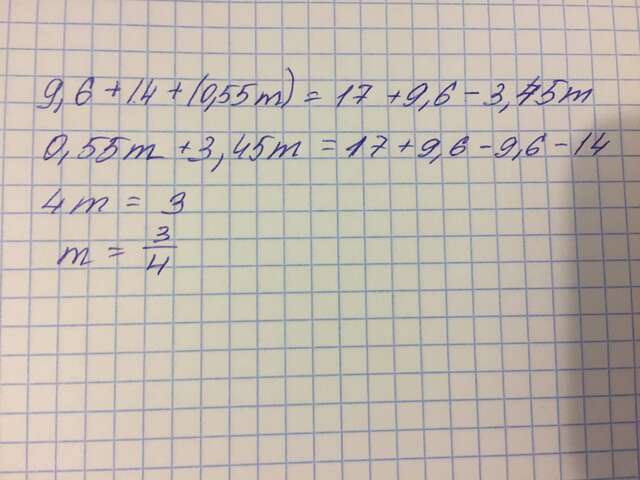 9,6 + 14 + (0,55m) = 17 + 9,6 - 3,45m
0,55m + 3,45m = 17 + 9,6 - 9,6 - 14
4m = 3
m = 3/4